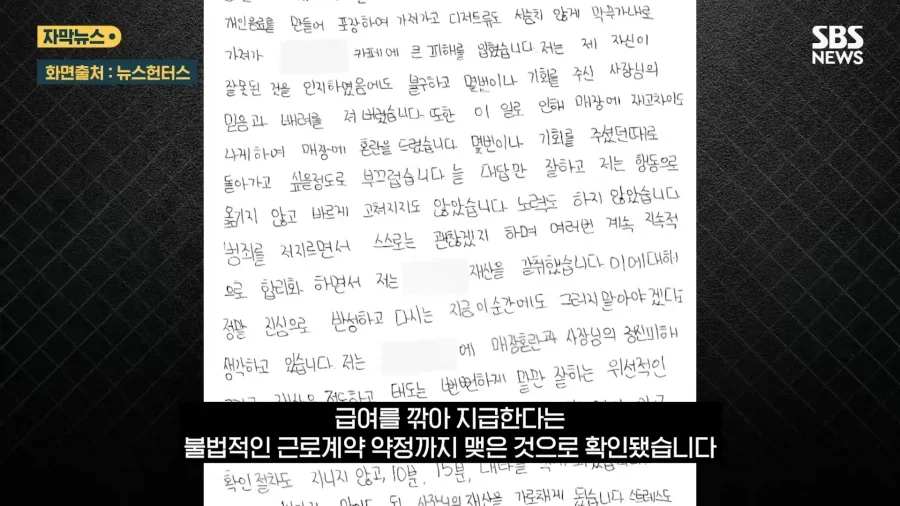 자막뉴스
화면출처 : 뉴스헌터스
SBS
NEWS
개인음료를 만들어 포장하여 가져가고 디저트류도 서슴치 않게 막무가내로
가져가 카페에 큰 피해를 입혔습니다. 저는 제 자신이
잘못된 것을 인지하였음에도 불구하고 몇번이나 기회를 주신 사장님의
믿음과 배려를 져 버렸습니다. 또한 이 일로 인해 매장에 재고차이도
나게하여 매장에 혼란을 드렸습니다. 몇번이나 기회를 주셨던때로
돌아가고 싶을정도로 부끄럽습니다 늘 대답만 잘하고 저는 행동으로
옮기지 않고 바르게 고쳐지지도 않았습니다 노력도 하지 않았습니다
범죄를 저지르면서 스스로는 괜찮겠지 하며 여러번 계속 지속적
으로 합리화 하면서 저는 재산을 갈취했습니다. 이에대해
정말 진심으로 반성하고 다시는 지금 이순간에도 그러지말아야겠다고
생각하고 있습니다. 저는 에 매장혼란과 사장님의 정신피해
태도는 뻔뻔하게 말만 잘하는 위선적인
급여를 깎아 지급한다는
불법적인 근로계약 약정까지 맺은 것으로 확인됐습니다
확인절차도 지니지 않고, 10분, 15분,
사장님의 재산을 가로채게 됐습니다 스트레스도